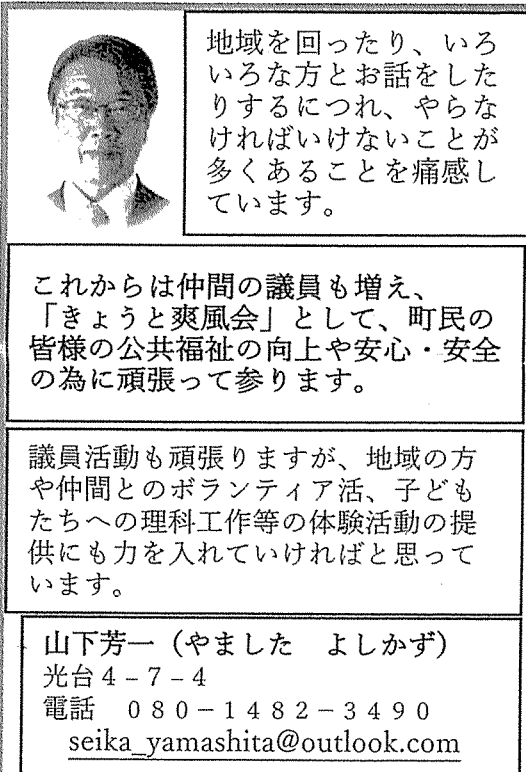 地域を回ったり、いろ
いろな方とお話をした
りするにつれ、やらな
ければいけないことが
多くあることを痛感し
ています。
これからは仲間の議員も増え、
「きょうと爽風会」として、町民の
皆様の公共福祉の向上や安心・安全
の為に頑張って参ります。
議員活動も頑張りますが、地域の方
や仲間とのボランティア活、子ども
たちへの理科工作等の体験活動の提
供にも力を入れていければと思って
います。
山下芳一（やました　よしかず）
光台４−７−４
電話　０８０−１４８２−３４９０
seika_yamashita@outlook.com